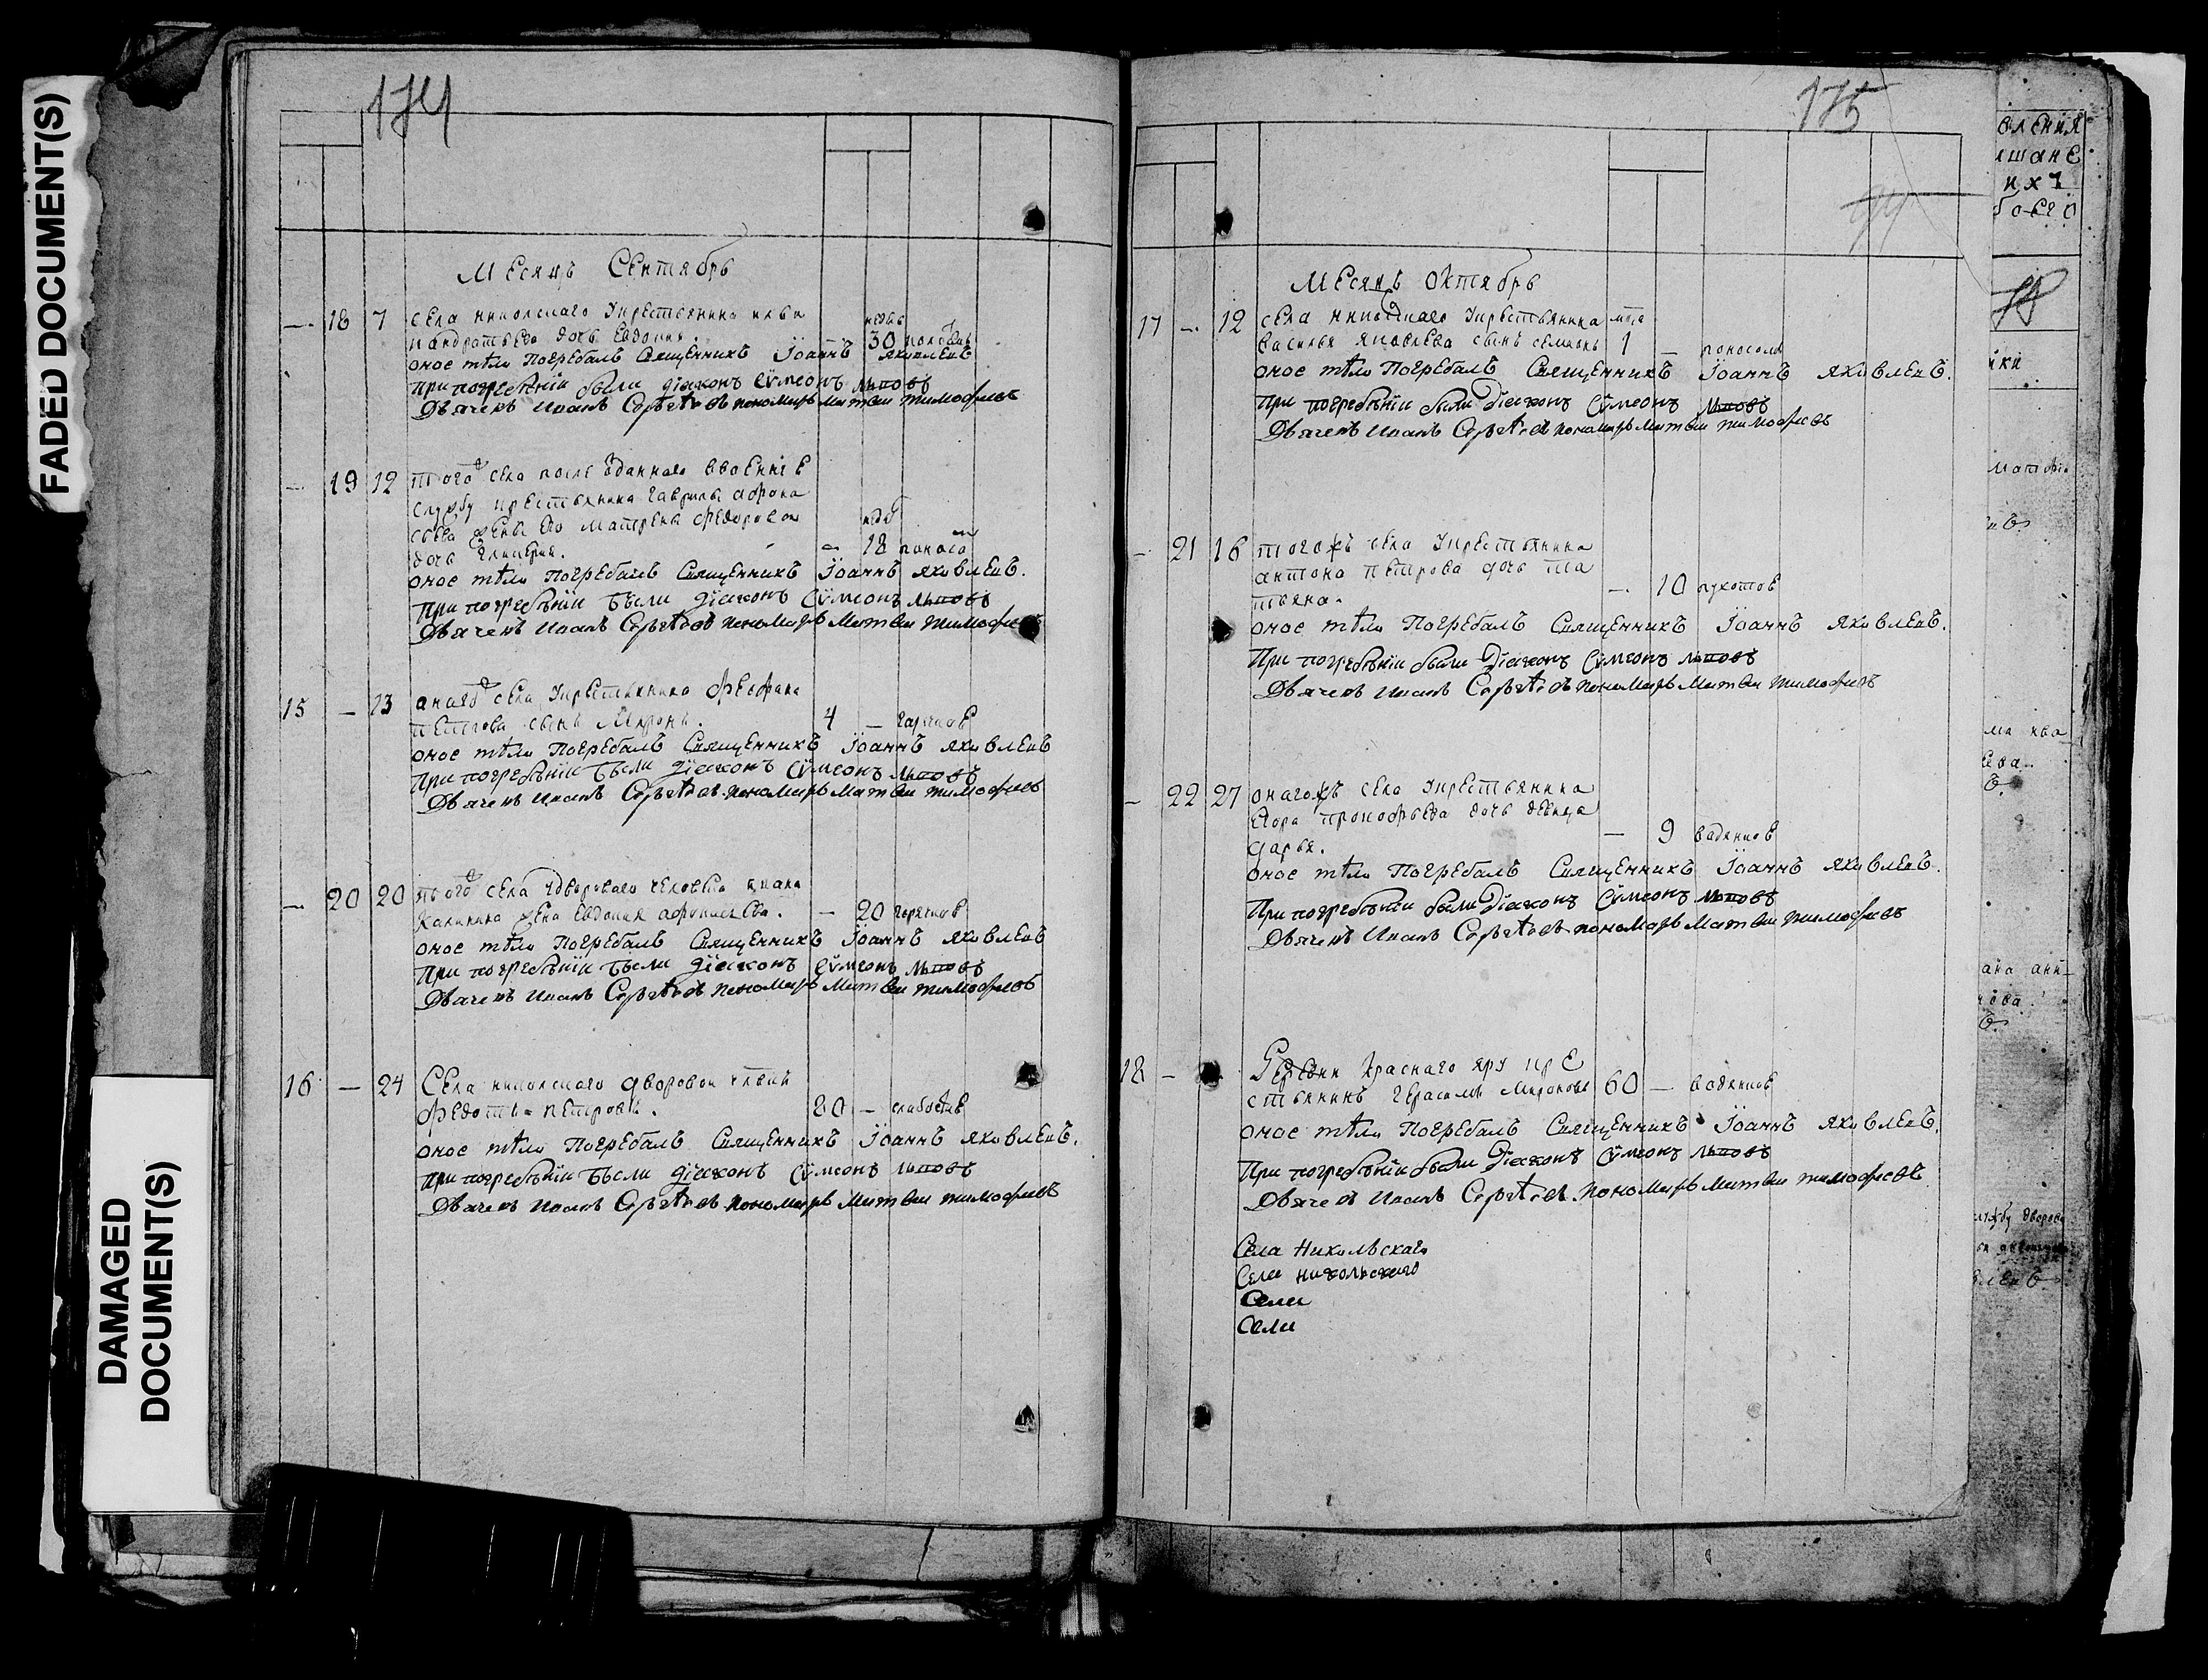 FADED DOCUMENT(S)
DAMAGED
DOCUMENT(S)
174
Месяцъ Сентябрь
— 18 7 села никольскаго Укрестьянина ильи
недель
кандратьева дочь Евдокия. 30
оное тѣло Погребалъ Священникъ Iоаннъ Яковлевъ
при погребѣніи были дiаконъ Сѵмеонъ Львовъ
Дьячекъ Иванъ Сергѣевъ пономарь Матвеи тимофеевъ
— 19 12 того села после отданнаго ввоенние
службу крестьянина гаврилы афона
сьева жены его матрены федоровои
недѣ
дочь гликерия. — 18 поносо
оное тѣло Погребалъ Священникъ Iоаннъ Яковлевъ.
При погребѣніи были дiаконъ Сѵмеонъ Львовъ
Дьячекъ Иванъ Сергѣевъ пономарь Матвеи тимофеевъ
15 — 13 онаго села Укрестьянина феофана
петрова сынъ Миронъ. 4 — гарячкоѣ
оное тѣло Погребалъ Священникъ Iоаннъ Яковлевъ
При погребѣніи были дiаконъ Сѵмеонъ Львовъ
Дьячекъ Иванъ Сергѣевъ пономарь Матвеи тимофеевъ
— 20 20 того села Удвороваго человека
калинина жена Евдокия — 20 горячкоѣ
оное тѣло Погребалъ Священникъ Iоаннъ Яковлевъ
При погребѣніи были дiаконъ Сѵмеонъ Львовъ
Дьячекъ Иванъ Сергѣевъ пономарь Матвеи тимофеевъ
16 — 24 Села никольскаго дворовои
Федотъ петровъ. 80 — слабостиѣ
оное тѣло Погребалъ Священникъ Iоаннъ Яковлевъ.
При погребѣніи были дiаконъ Сѵмеонъ Львовъ
Дьячекъ Иванъ Сергѣевъ пономарь Матвеи тимофеевъ
175
Месяцъ Октябрь
17 — 12 села никольскаго Укрестьянина
василья яковлева сынъ семионъ 1 — поносомъ
оное тѣло Погребалъ Священникъ Iоаннъ Яковлевъ.
При погребѣніи были дiаконъ Сѵмеонъ Львовъ
Дьячекъ Иванъ Сергѣевъ пономарь Матвеи тимофеевъ
— 21 16 тогожъ села Укрестьянина
антона петрова дочь та
тьяна. — 10 сухотоѣ
оное тѣло Погребалъ Священникъ Iоаннъ Яковлевъ.
При погребѣніи были дiаконъ Сѵмеонъ Львовъ
Дьячекъ Иванъ Сергѣевъ пономарь Матвеи тимофеевъ
— 22 27 онагожъ села Укрестьянина
егора прокофьева дочь девица
дарья. — 9 вадяноѣ
оное тѣло Погребалъ Священникъ Iоаннъ Яковлевъ.
При погребѣніи были дiаконъ Сѵмеонъ Львовъ
Дьячекъ Иванъ Сергѣевъ пономарь Матвеи тимофеевъ
18 — Деревни Краснаго яру кре
стьянинъ герасимъ мироновъ 60 — водяноѣ
оное тѣло Погребалъ Священникъ Iоаннъ Яковлевъ.
При погребѣніи были дiаконъ Сѵмеонъ Львовъ
Дьячекъ Иванъ Сергѣевъ пономарь Матвеи тимофеевъ
Села Никольскаго
Села никольскаго
Села
Села